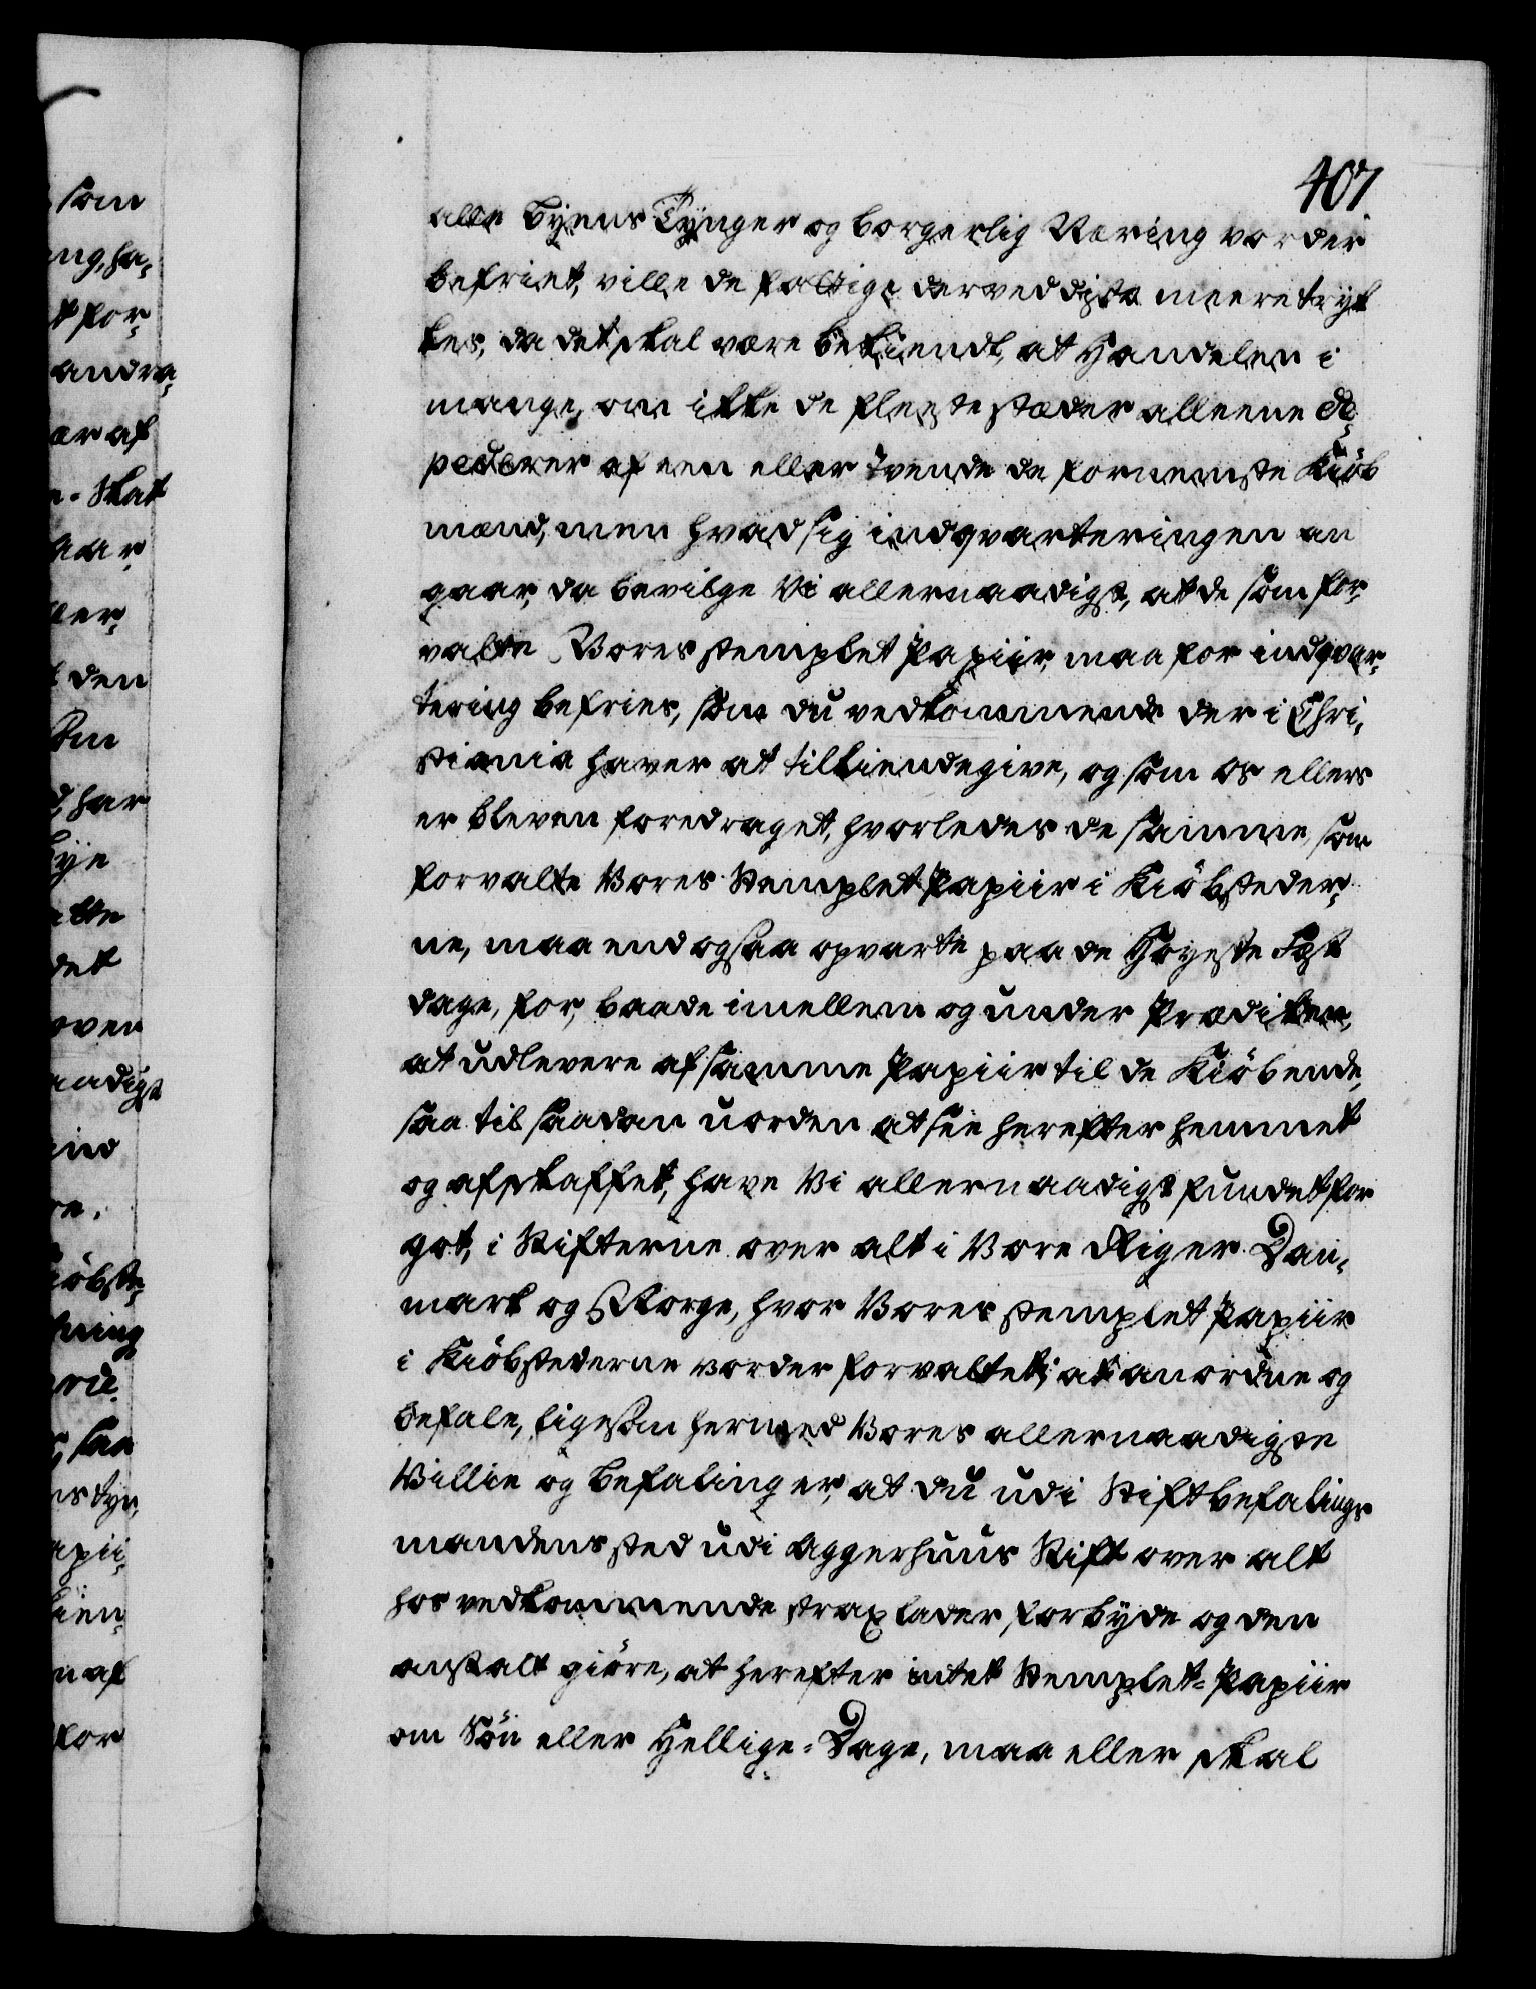 407
alle Byens Tynger og borgerlig Næring vorder
befriet, ville de fattige derved diste meere tryk
kes, da det skal være bekiendt, at Handelen i
mange, om ikke de fleeste stæder alleene de
penderer af een eller tvende de fornemste Kiöb
mænd, men hvad sig indqvarteringen an
gaar, da bevilge Vi allernaadigst, at de som for,
valte Vores stemplet Papiir, maa for indqvar,
tering befries, som du vedkommende der i Chri,
stiania haver at tilkiendegive, og som os ellers
er bleven foredraget, hvorledes de samme, som
forvalte Vores Stemplet Papiir i Kiöbsteder,
ne, maa endogsaa opvarte paa de Høyeste Fæst
dage, for, baade imellem og under Prædiken,
at udlevere af samme Papiir til de Kiöbende,
saa til saadan uorden at see herefter hemmet
og afskaffet, have Vi allernaadigst fundet for
got, i Stifterne over alt i Vore Riger Dan,
mark og Norge, hvor Vores stemplet Papiir
i Kiöbstederne vorder forvaltet, at anordne og
befale, ligesom hermed Vores allernaadigste
Villie og Befaling er, at du udi Stiftbefalings
mandens sted udi Aggerhuus Stift over alt
hos vedkommende strax lader, forbyde og den
anstalt giöre, at herefter intet Stemplet-Papiir
om Sön eller Hellige-Dage, maa eller skal